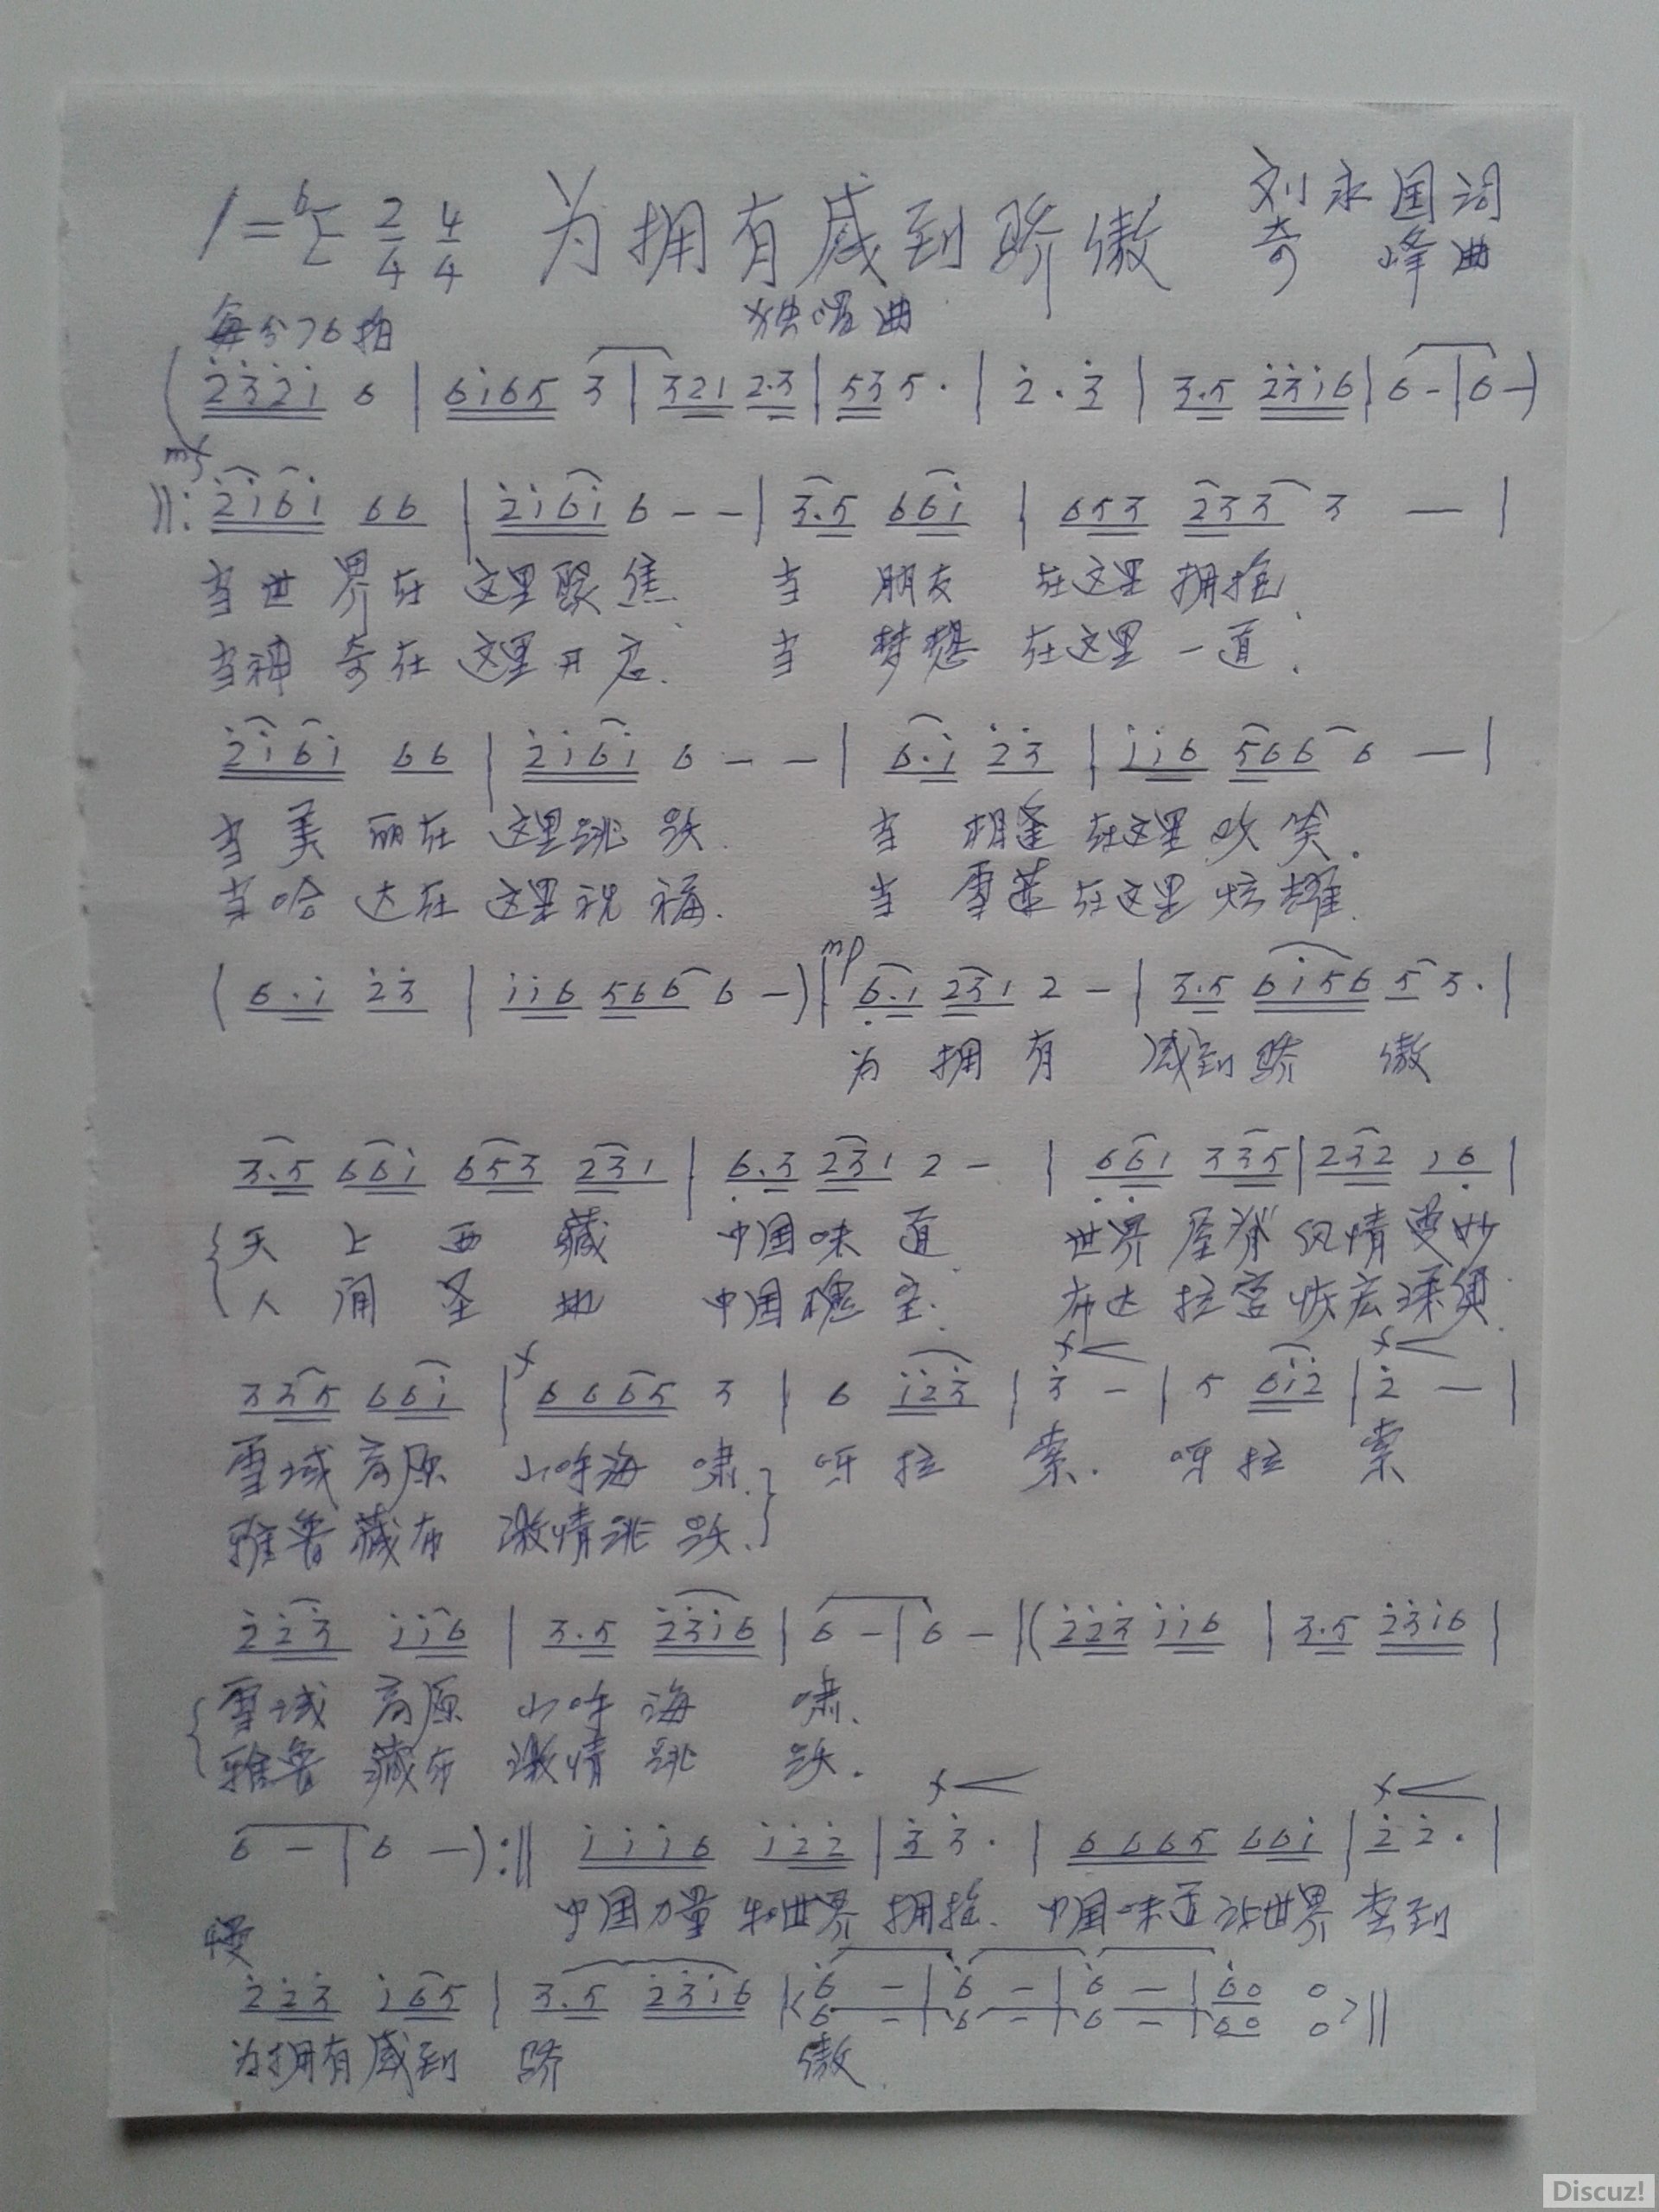 1=♭E 2/4 4/4 为拥有感到骄傲 刘永国词
奇峰曲
每分76拍 独唱曲
(2̇3̇2̇1̇ 6 | 61̇65 3 | 321 2·3 | 535· | 2̇·3̇ | 3·5 2̇3̇1̇6 | 6 - | 6 - )
mf
‖: 2̇1̇61̇ 66 | 2̇1̇61̇ 6 - - | 3·5 661̇ | 653 233 3 - |
当世界在这里聚焦. 当朋友在这里拥抱.
当神奇在这里开启. 当梦想在这里一道.
2̇1̇61̇ 66 | 2̇1̇61̇ 6 - - | 6·1̇ 2̇3̇ | 1̇1̇6 566 6 - |
当美丽在这里跳跃. 当相逢在这里欢笑.
当哈达在这里祝福. 当雪莲在这里炫耀.
mp
(6·1̇ 2̇3̇ | 1̇1̇6 566 6 - ) | 6̣·1 231 2 - | 3·5 61̇56 5 3· |
为拥有感到骄傲
3·5 661̇ 653 231 | 6̣·3 231 2 - | 6̣6̣1 335 | 232 16̣ |
天上西藏 中国味道. 世界屋脊风情曼妙
人间圣地 中国瑰宝. 布达拉宫恢宏深奥.
f f< f<
335 661̇ | 6665 3 | 6 1̇2̇3̇ | 3̇ - | 5 61̇2̇ | 2̇ - |
雪域高原 山呼海啸. 呀拉索. 呀拉索
雅鲁藏布 激情跳跃.
2̇2̇3̇ 1̇1̇6 | 3·5 2̇3̇1̇6 | 6 - | 6 - | (2̇2̇3̇ 1̇1̇6 | 3·5 2̇3̇1̇6 |
雪域高原山呼海啸.
雅鲁藏布激情跳跃.
f< f<
6 - | 6 - ) :‖ 1̇1̇1̇6 1̇2̇2̇ | 3̇ 3̇· | 6665 661̇ | 2̇ 2̇· |
中国力量和世界拥抱. 中国味道让世界香到
慢
2̇2̇3̇ 1̇65 | 3·5 2̇3̇1̇6 | <6̇ - | 6̇ - | 6̇ - | 6̇0 0
6 - | 6 - | 6 - | 60 0>‖
为拥有感到骄傲.
Discuz!